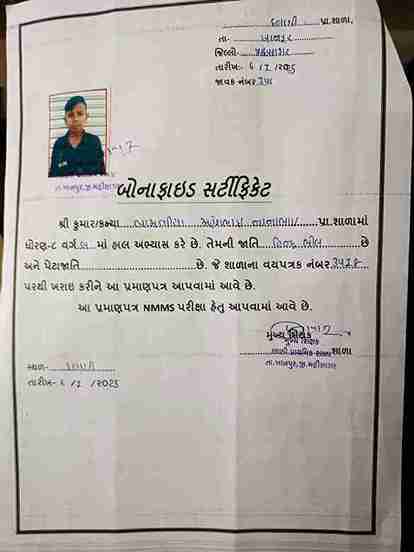 પ્રા.શાળા,
તા- ખાનપુર
જિલ્લો- મહીસાગર
તારીખ:- ૬/૧/૨૦૨૬
જાવક નંબર
તા.ખાનપુર,જી.મહીસાગર
બોનાફાઇડ સર્ટીફિકેટ
શ્રી કુમાર/કન્યા પ્રા.શાળામાં
ધોરણ-૮ વર્ગ માં હાલ અભ્યાસ કરે છે. તેમની જાતિ હિન્દુ ભીલ છે
અને પેટાજાતિ છે. જે શાળાના વયપત્રક નંબર
પરથી ખરાઇ કરીને આ પ્રમાણપત્ર આપવામાં આવે છે.
આ પ્રમાણપત્ર NMMS પરીક્ષા હેતુ આપવામાં આવે છે.
મુખ્ય શિક્ષક
મુખ્ય શિક્ષક
પ્રાથમિક શાળા શાળા
તા.ખાનપુર,જી.મહીસાગર
સ્થળ-
તારીખ- ૬/૧/૨૦૨૬